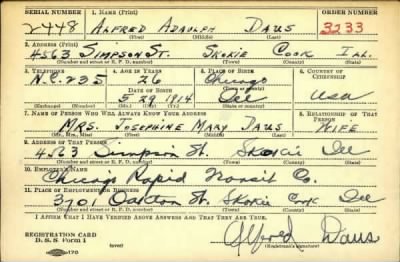 SERIAL NUMBER 1. NAME (Print) ORDER NUMBER
2448 ALFRED DAUS 3233
(First) (Middle) (Last)
2. ADDRESS (Print)
4563 SIMPSON ST. SKOKIE COOK ILL.
(Number and street or R. F. D. number) (Town) (County) (State)
3. TELEPHONE 4. AGE IN YEARS 5. PLACE OF BIRTH 6. COUNTRY OF CITIZENSHIP
N.C. 235 26 Chicago
DATE OF BIRTH (Town or county)
5 29 1914 Ill USA
(Exchange) (Number) (Mo.) (Day) (Yr.) (State or country)
7. NAME OF PERSON WHO WILL ALWAYS KNOW YOUR ADDRESS 8. RELATIONSHIP OF THAT PERSON
MRS. JOSEPHINE MARY DAUS WIFE
(Mr., Mrs., Miss) (First) (Middle) (Last)
9. ADDRESS OF THAT PERSON
4563 Simpson St. Skokie Ill
(Number and street or R. F. D. number) (Town) (County) (State)
10. EMPLOYER'S NAME
Chicago Rapid Transit Co.
11. PLACE OF EMPLOYMENT OR BUSINESS
3701 Oakton St. Skokie Cook Ill
(Number and street or R. F. D. number) (Town) (County) (State)
I AFFIRM THAT I HAVE VERIFIED ABOVE ANSWERS AND THAT THEY ARE TRUE.
REGISTRATION CARD
D. S. S. Form 1 Alfred Daus
(Registrant's signature)